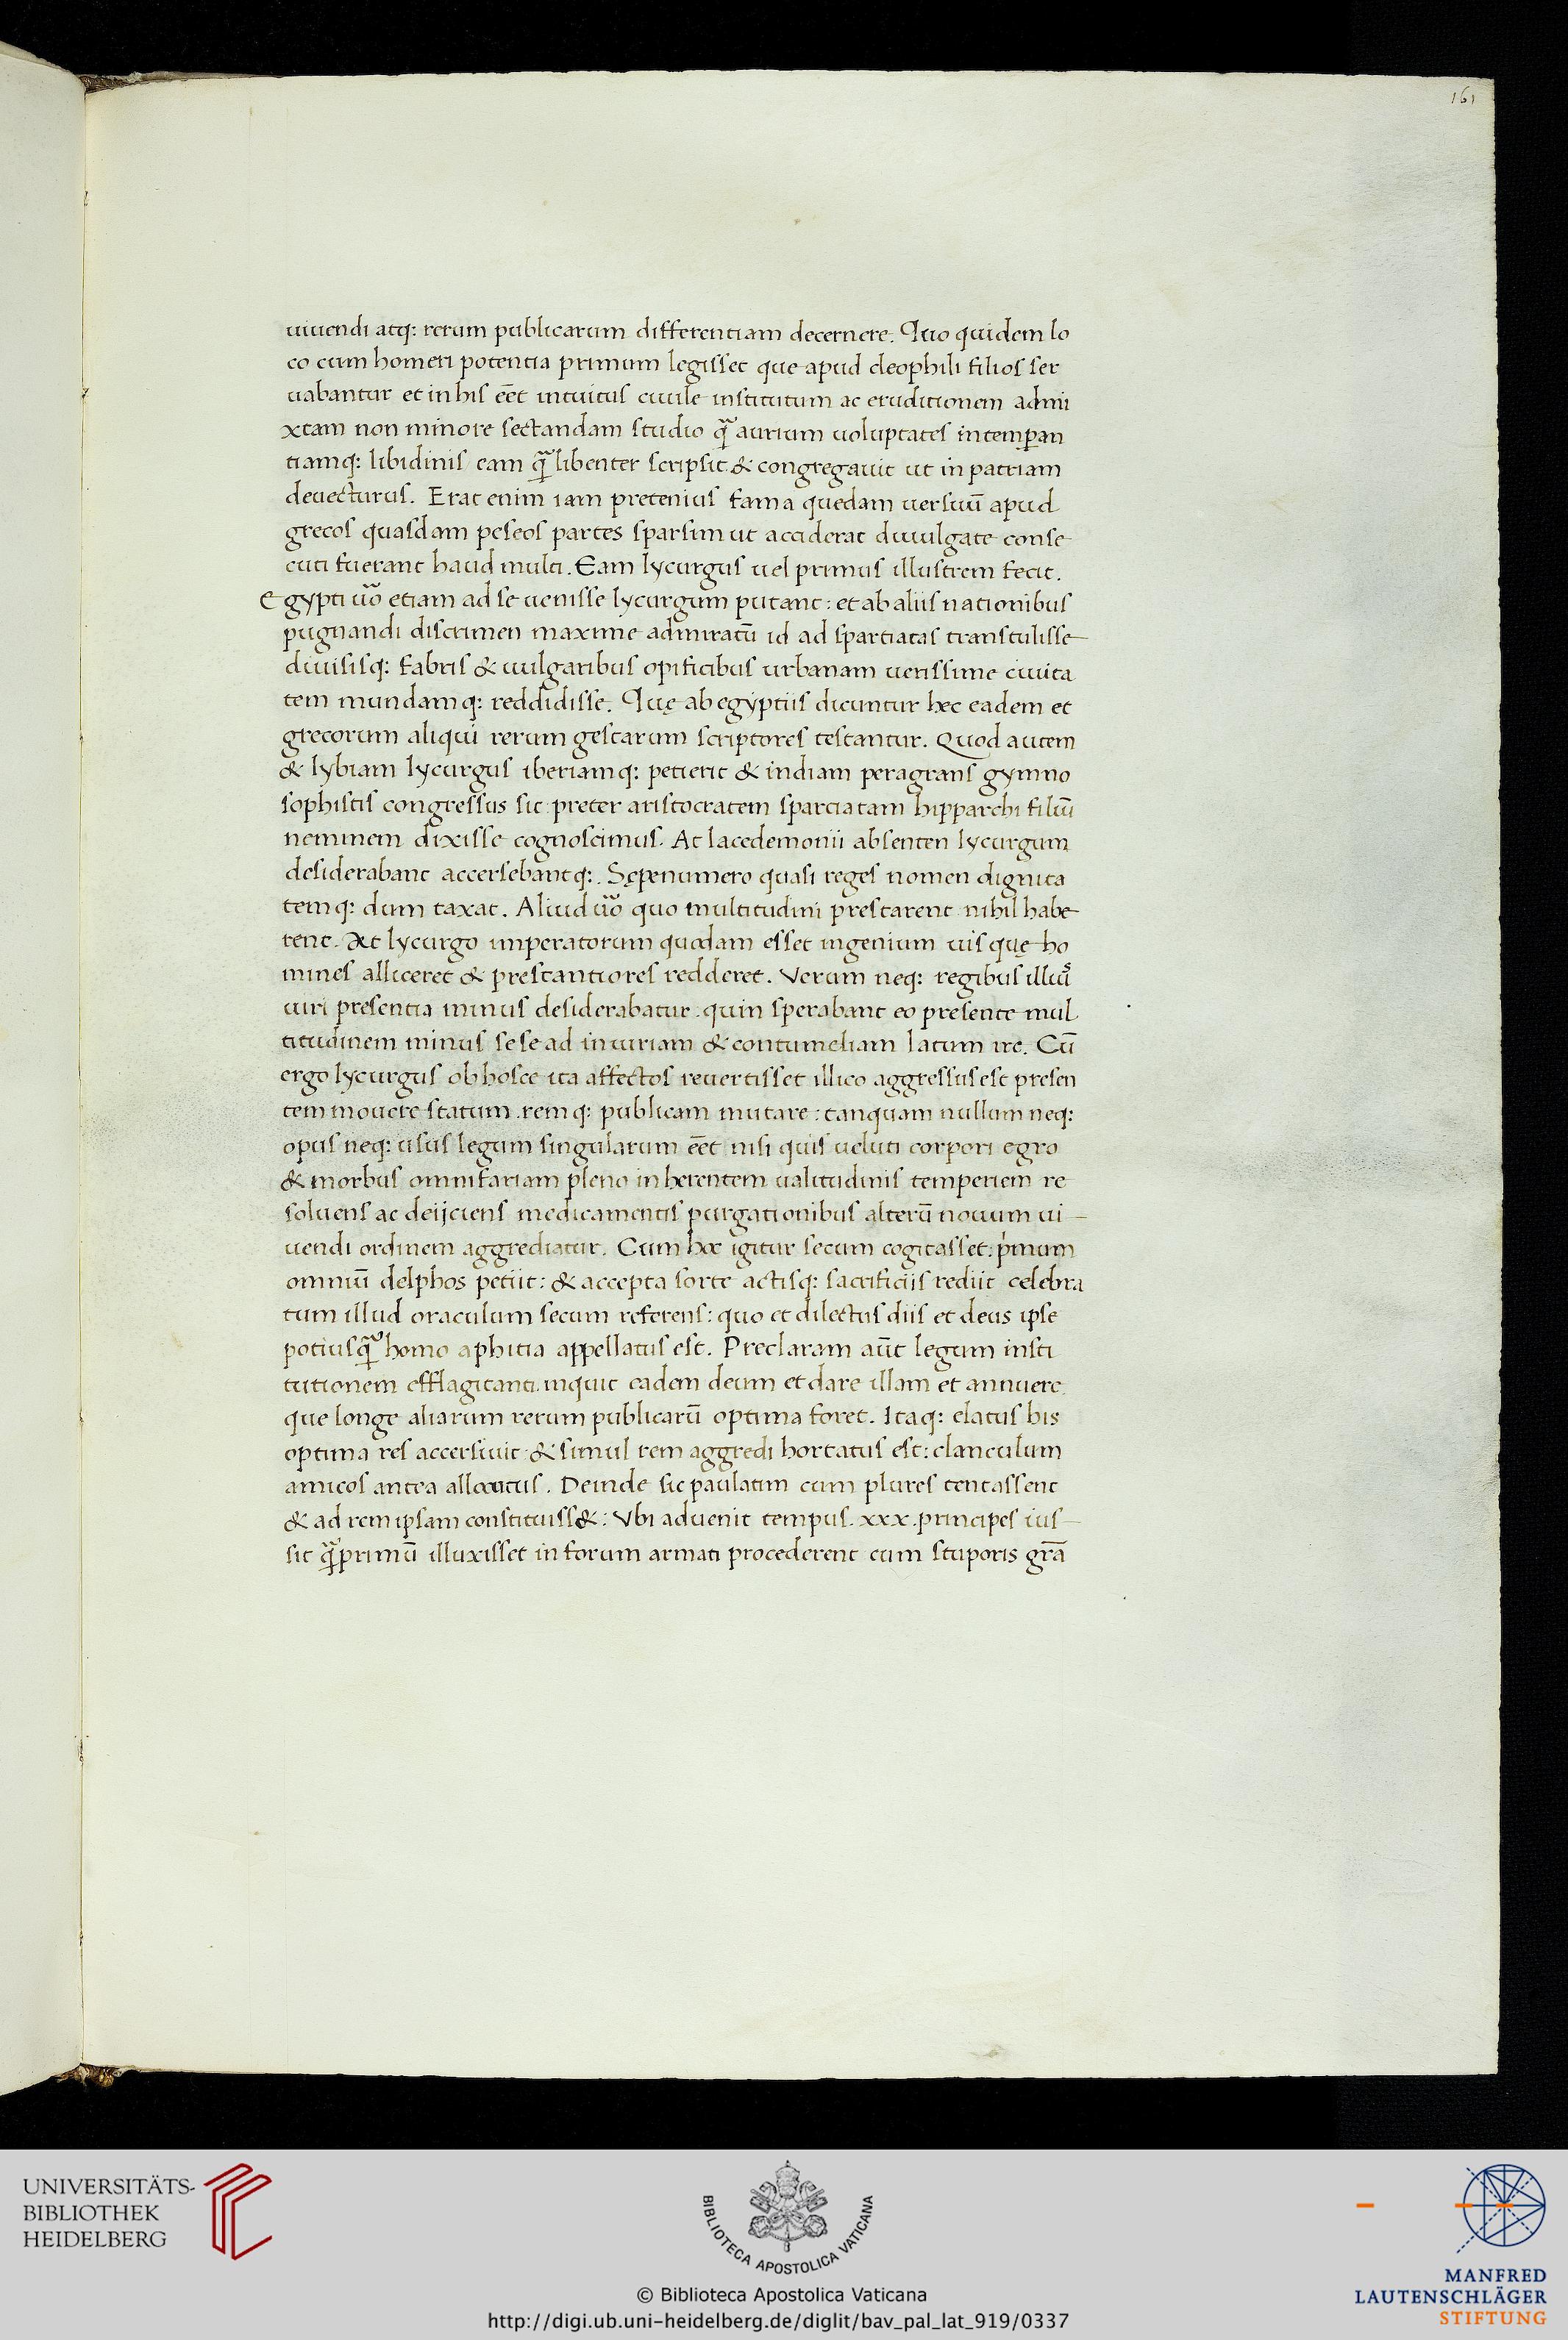 161
uiuendi atq: rerum publicarum differentiam decernere. Quo quidem lo
co cum homeri potentia primum legisset que apud cleophili filios ser
uabantur et in his eēt intuitus ciuile institutum ac eruditionem admi
xtam non minore sectandam studio q̃ aurium uoluptates intemꝑan
tiamq: libidinis eam q̃ libenter scripsit & congregauit ut in patriam
deuecturus. Erat enim iam pretenius fama quedam uersuū apud
grecos quasdam peseos partes sparsim ut acciderat diuulgate conse
cuti fuerant haud multi. Eam lycurgus uel primus illustrem fecit.
Egypti ũo etiam ad se uenisse lycurgum putant: et ab aliis nationibus
pugnandi discrimen maxime admiratū id ad spartiatas transtulisse
diuisisq: fabris & uulgaribus opificibus urbanam uerissime ciuita
tem mundamq: reddidisse. Quę ab egyptiis dicuntur hec eadem et
grecorum aliqui rerum gestarum scriptores testantur. Quod autem
& lybiam lycurgus iberiamq: petierit & indiam peragrans gymno
sophistis congressus sit preter aristocratem sparciatam hipparchi filiū
neminem dixisse cognoscimus. At lacedemonii absenten lycurgum
desiderabant accersebantq:. Sępenumero quasi reges nomen dignita
temq: dum taxat. Aliud ũo quo multitudini prestarent nihil habe
rent. At lycurgo imperatorum quodam esset ingenium uis quę ho
mines alliceret & prestantiores redderet. Verum neq: regibus illius
uiri presentia minus desiderabatur. quin sperabant eo presente mul
titudinem minus sese ad iniuriam & contumeliam latum ire. Cū
ergo lycurgus ob hosce ita affectos reuertisset illico aggressus est presen
tem mouere statum. remq: publicam mutare: tanquam nullum neq:
opus neq: usus legum singularum eēt nisi quis ueluti corpori egro
& morbus omnifariam pleno inherentem ualitudinis temperiem re
soluens ac deijciens medicamentis purgationibus alterū nouum ui
uendi ordinem aggrediatur. Cum hoc igitur secum cogitasset: pͥmum
omniū delphos petiit: & accepta sorte actisq: sacrificijs rediit celebra
tum illud oraculum secum referens: quo et dilectus diis et deus ipse
potiusq̃ homo aphitia appellatus est. Preclaram aūt legum insti
tutionem efflagitanti. inquit eadem deum et dare illam et annuere
que longe aliarum rerum publicarū optima foret. Itaq: elatus his
optima res accersiuit & simul rem aggredi hortatus est: clanculum
amicos antea allocutus. Deinde sic paulatim cum plures tentassent
& ad rem ipsam constituiss&: Vbi aduenit tempus. xxx. principes ius
sit q̃primū illuxisset in forum armati procederent cum stuporis grā
UNIVERSITÄTS-
BIBLIOTHEK
HEIDELBERG
BIBLIOTECA APOSTOLICA VATICANA
© Biblioteca Apostolica Vaticana
http://digi.ub.uni-heidelberg.de/diglit/bav_pal_lat_919/0337
MANFRED
LAUTENSCHLÄGER
STIFTUNG